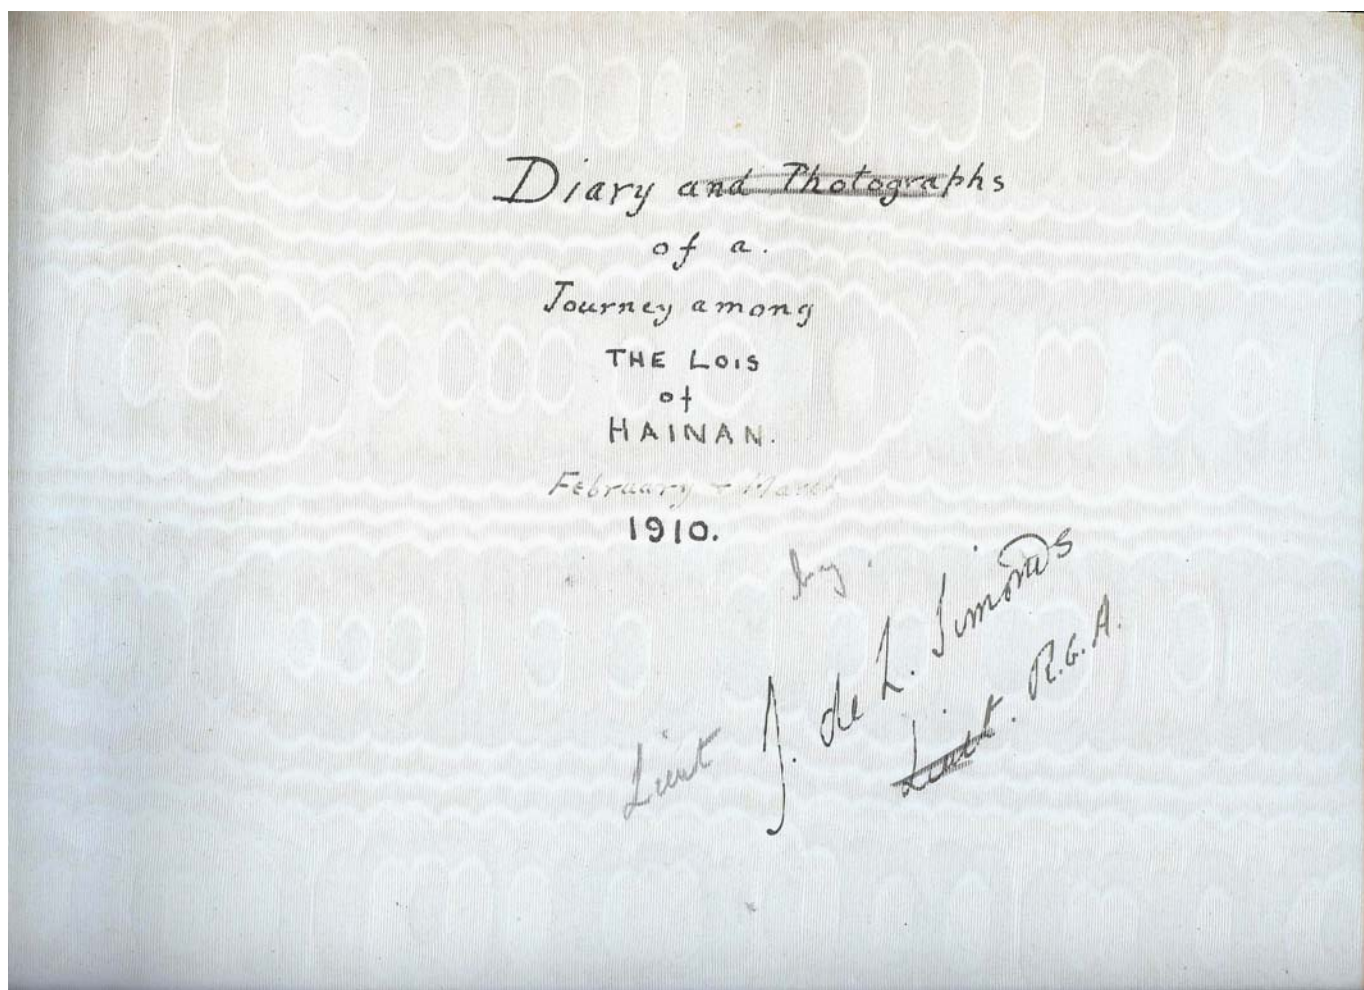 Diary and Photographs
of a.
Journey among
THE LOIS
of
HAINAN.
February & March
1910.
by.
Lieut J. de L. Simonds
Lieut. R.G.A.